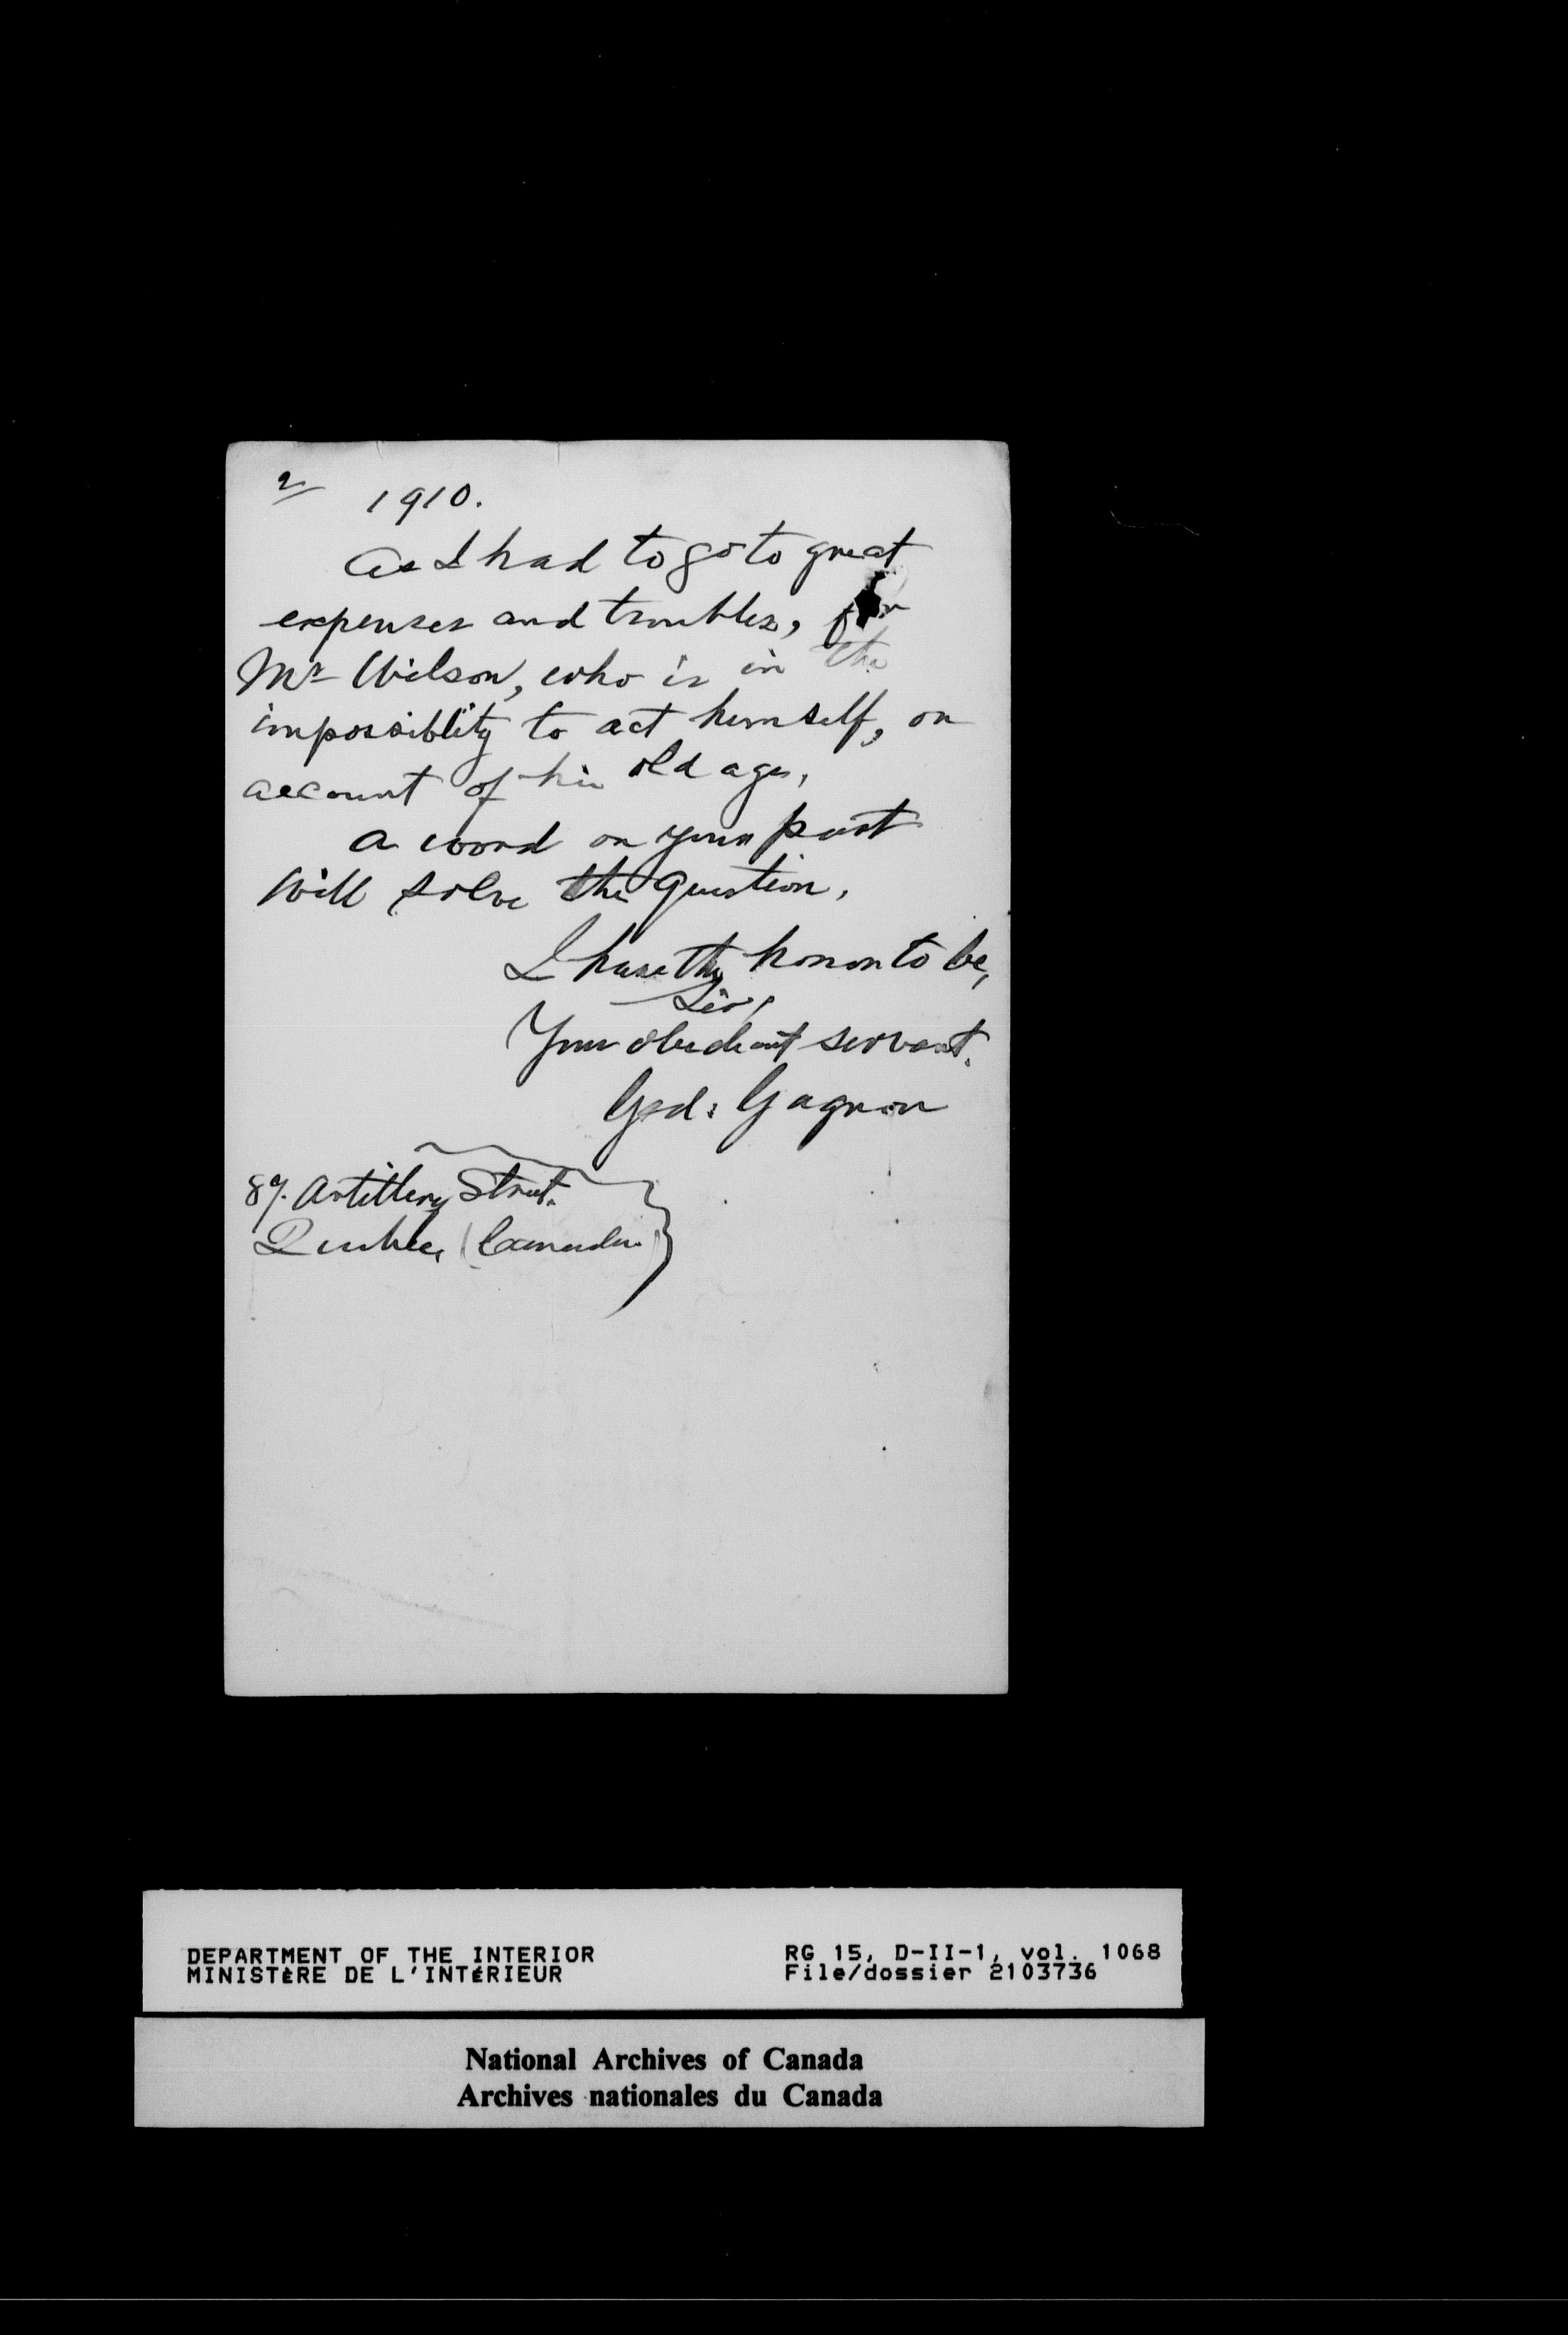 2
1910.
As I had to go to great
expenses and troubles, for
Mr Wilson, who is in the
impossiblity to act himself, on
account of his old age,
a word on your part
Will solve the question.
I have the honor to be,
Sir,
Your obedient servant.
Ged: Gagnon
89. Artillery Street.
Quebec, (Canada.)
DEPARTMENT OF THE INTERIOR
MINISTÈRE DE L'INTÉRIEUR
RG 15, D-II-1, vol. 1068
File/dossier 2103736
National Archives of Canada
Archives nationales du Canada